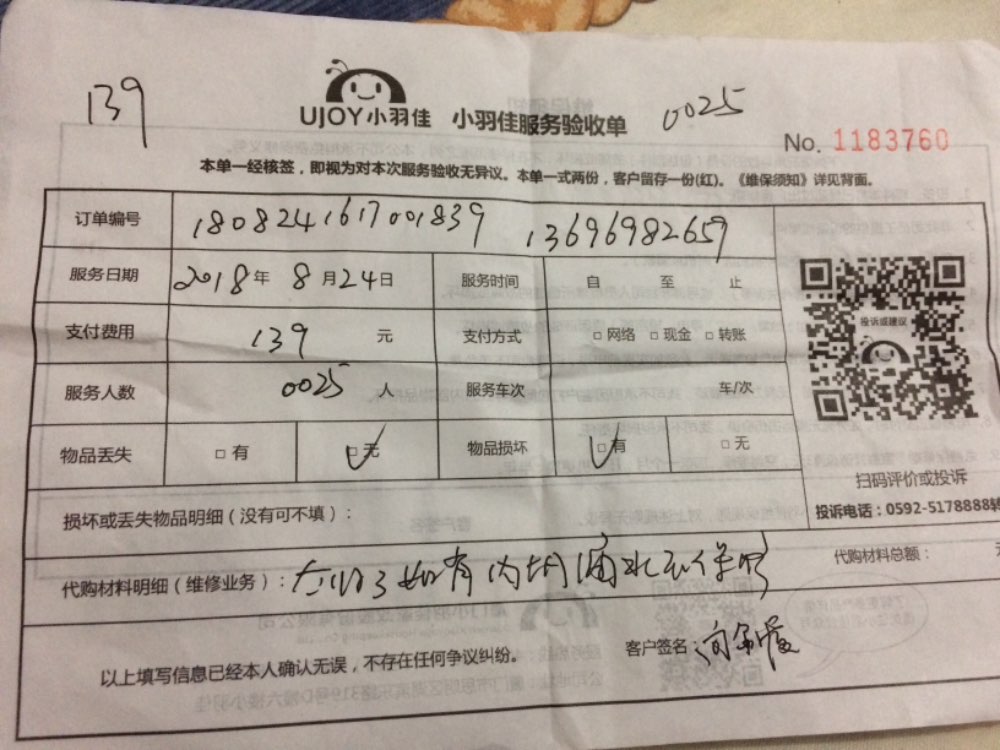 139
UJOY小羽佳 小羽佳服务验收单 0025
No. 1183760
本单一经核签，即视为对本次服务验收无异议。本单一式两份，客户留存一份(红)。《维保须知》详见背面。
订单编号 1808241617001839 13696982659
服务日期 2018年 8月24日 服务时间 自 至 止
支付费用 139 元 支付方式 □ 网络 □ 现金 □ 转账
服务人数 0025 人 服务车次 车/次
物品丢失 □ 有 □ 无 物品损坏 □ 有 □ 无
投诉或建议
扫码评价或投诉
投诉电话：0592-5178888转
损坏或丢失物品明细（没有可不填）：
代购材料明细（维修业务）： 如有内
代购材料总额：
客户签名：
以上填写信息已经本人确认无误，不存在任何争议纠纷。